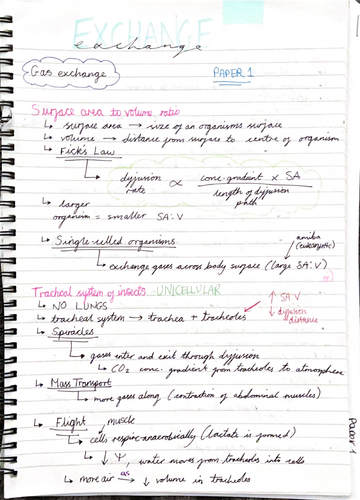 EXCHANGE
exchange
Gas exchange
PAPER 1
Surface area to volume ratio
↳ surface area → size of an organisms surface
↳ volume → distance from surface to centre of organism
↳ Fick's Law
↳ diffusion rate ∝ conc. gradient × SA / length of diffusion path
↳ larger
organism = smaller SA:V
amoeba
(eukaryotic)
↳ Single-celled organisms
↳ exchange gases across body surface (large SA:V)
Tracheal system of insects UNICELLULAR
↳ NO LUNGS
↑ SA:V
↳ tracheal system → trachea + tracheoles
↓ diffusion distance
↳ Spiracles
↳ gases enter and exit through diffusion
↳ CO2 conc. gradient from tracheoles to atmosphere
↳ Mass Transport
↳ more gases along (contraction of abdominal muscles)
↳ Flight muscle
↳ cells respire anaerobically (lactate is formed)
↳ ↓ Ψ, water moves from tracheoles into cells
↳ more air as → ↓ volume in tracheoles
Paper 1